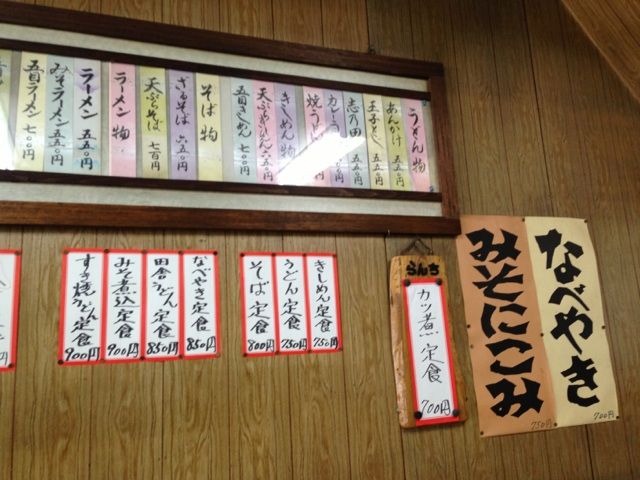 うどん物
あんかけ 五五〇円
玉子とじ 五五〇円
志乃田
カレー
焼うどん
きしめん物
天ぷらきしめん 六五〇円
五目きしめん 七〇〇円
そば物
ざるそば 六五〇円
天ぷらそば 七百円
ラーメン物
ラーメン 五五〇円
みそラーメン 五五〇円
五目ラーメン 七〇〇円
なべやき
700円
みそにこみ
750円
らんち
カツ煮定食
700円
きしめん定食
750円
うどん定食
750円
そば定食
800円
なべやき定食
850円
田舎うどん定食
850円
みそ煮込定食
900円
すき焼うどん定食
900円